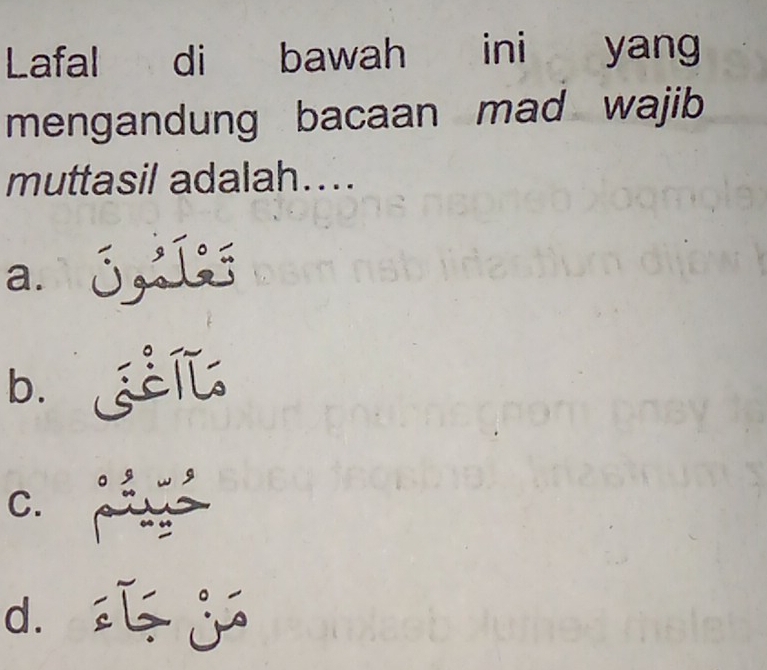 Lafal di bawah ini yang
mengandung bacaan mad wajib
muttasil adalah....
a. تَعْلَمُونَ
b. مَآاَغْنَى
c. حُيِّيْتُمْ
d. مَنْ جَآءَ